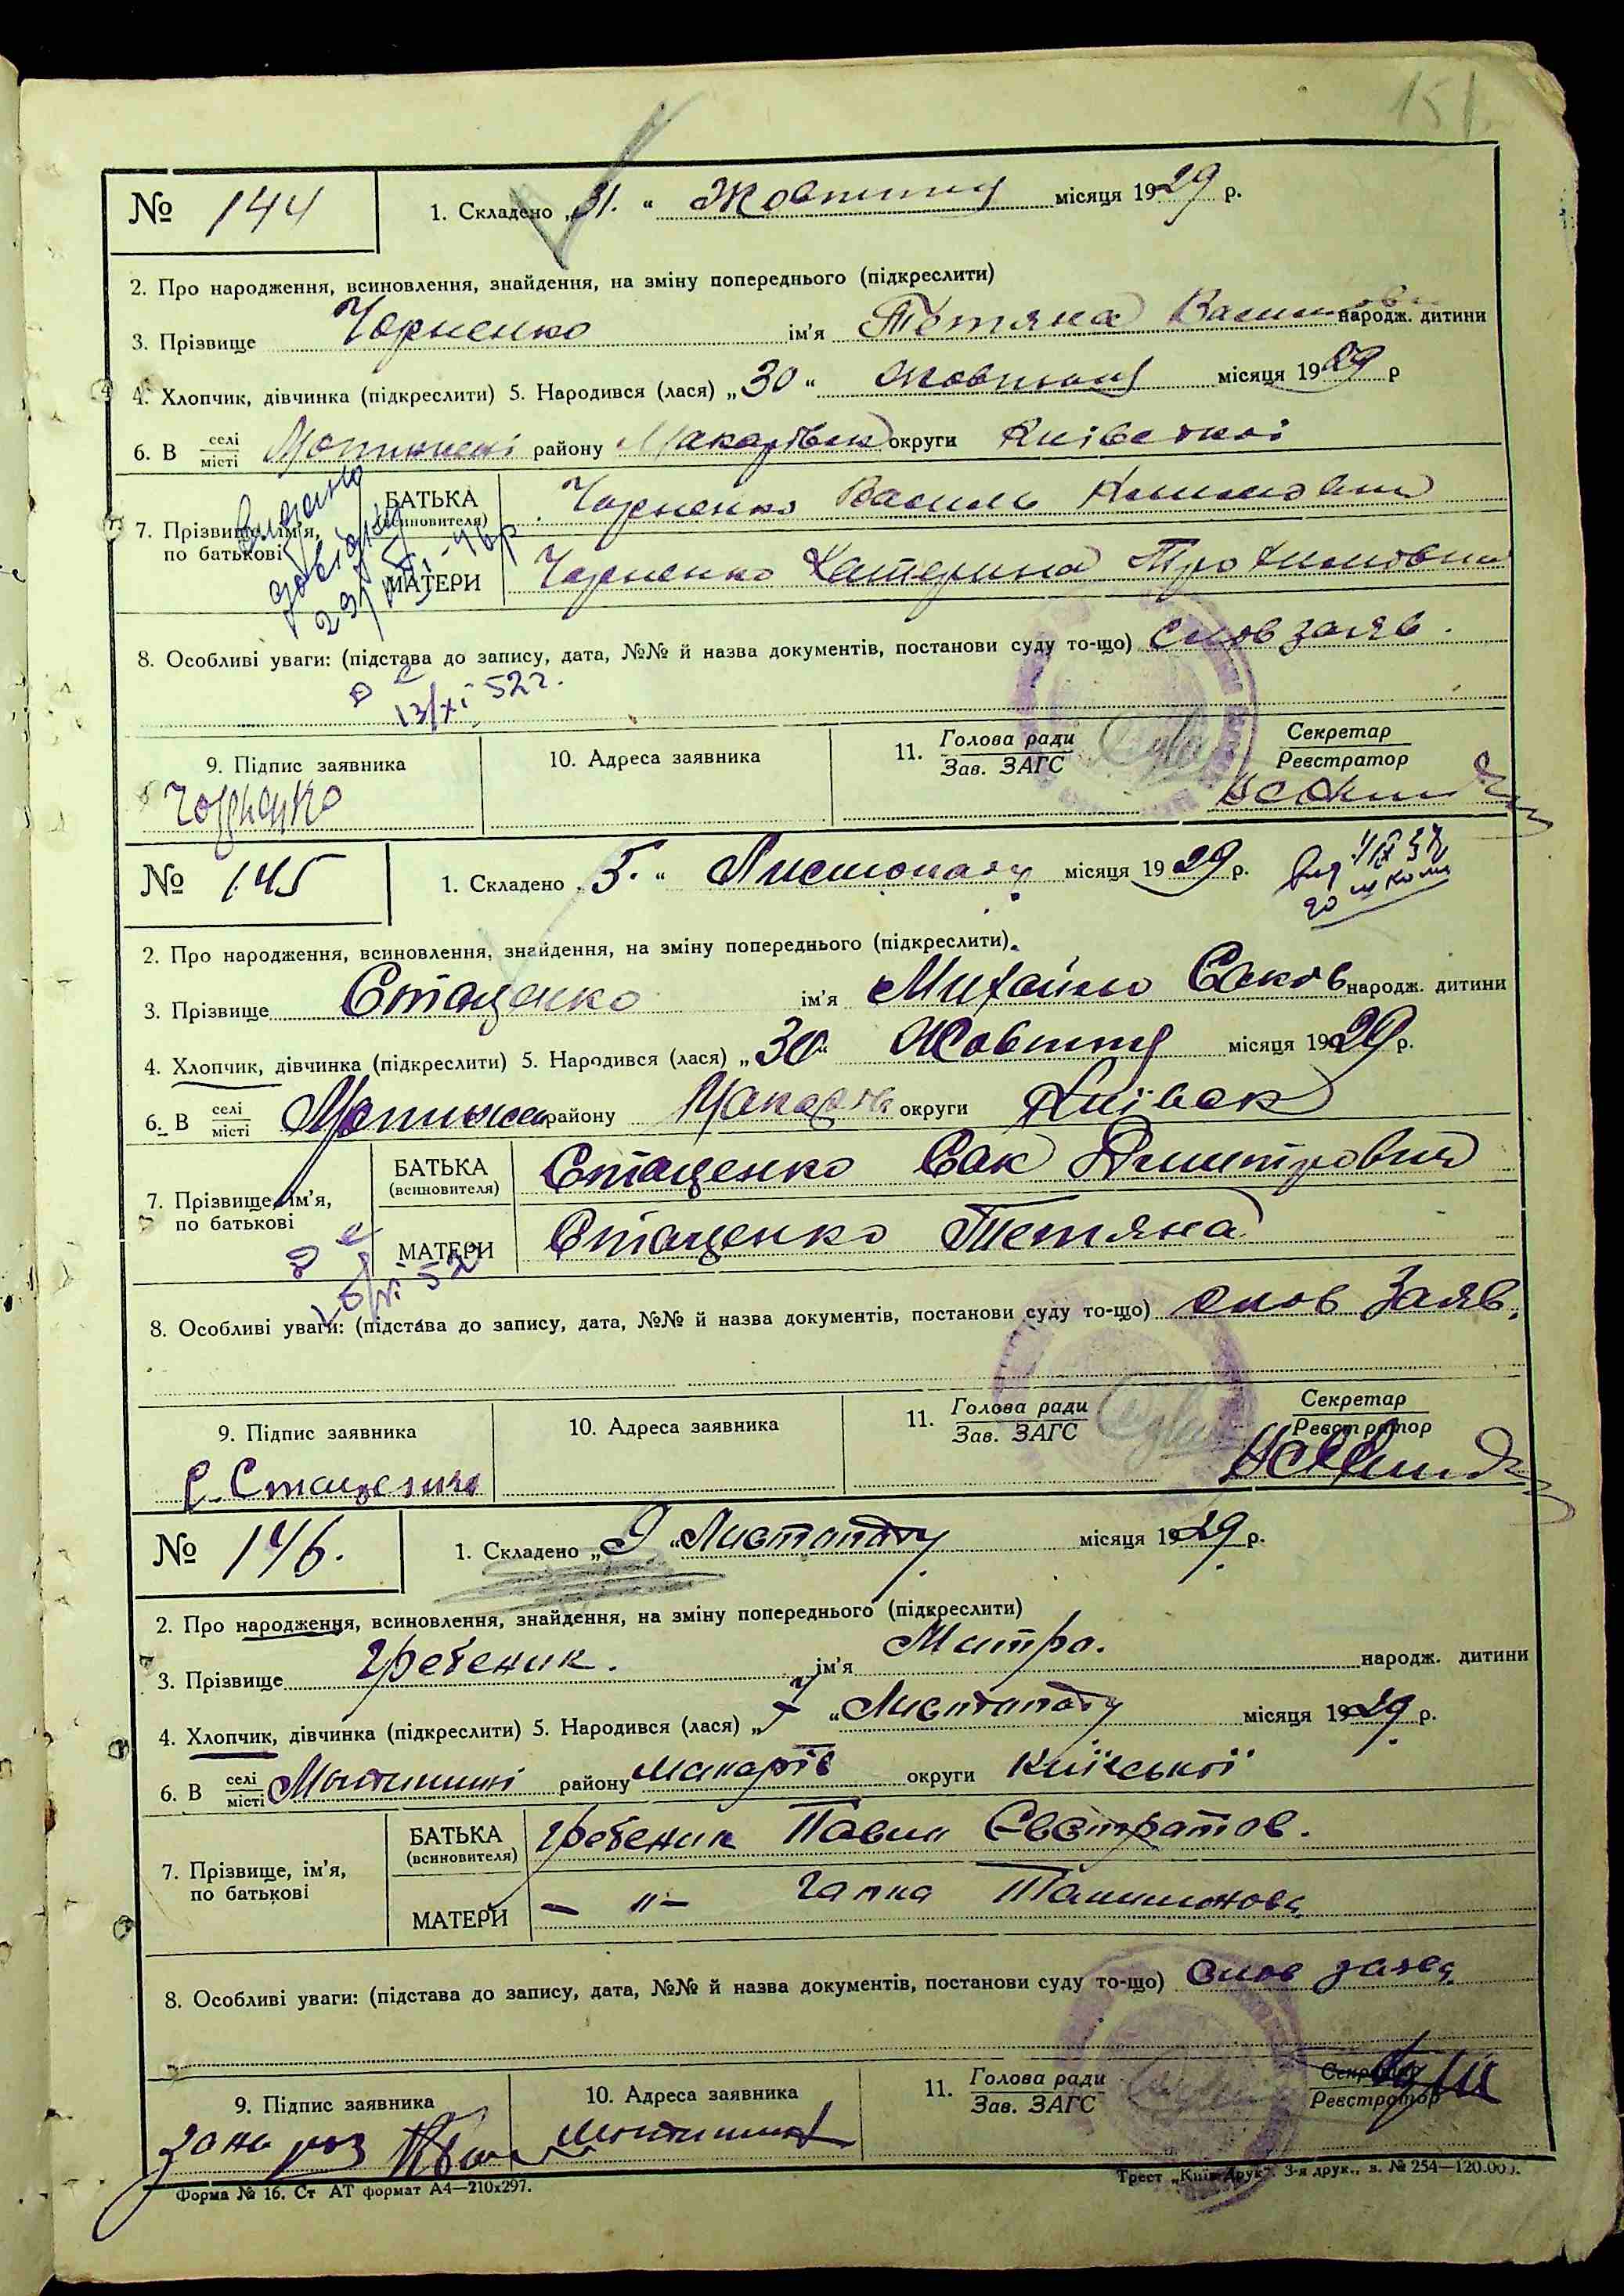 151
№ 144
1. Складено „31. “ Жовтня місяця 1929 р.
2. Про народження, всиновлення, знайдення, на зміну попереднього (підкреслити)
3. Прізвище Чорненко ім’я Тетяна народж. дитини
4. Хлопчик, дівчинка (підкреслити) 5. Народився (лася) „30“ жовтня місяця 1929 р
6. В селі/місті району Макарівськ округи Київської
7. Прізвище, ім’я, по батькові
БАТЬКА (всиновителя) Чорненко Василь
МАТЕРИ Чорненко Катерина Трохимовна
Видано
23/
8. Особливі уваги: (підстава до запису, дата, №№ й назва документів, постанови суду то-що) Слов заяв.
13/XI 52 г.
9. Підпис заявника
10. Адреса заявника
11. Голова ради / Зав. ЗАГС
Секретар / Реєстратор
Чорненко
№ 145
1. Складено „5.“ Листопаду місяця 1929 р.
2. Про народження, всиновлення, знайдення, на зміну попереднього (підкреслити)
3. Прізвище Стаценко ім’я Михайло Саков народж. дитини
4. Хлопчик, дівчинка (підкреслити) 5. Народився (лася) „30“ Жовтня місяця 1929 р.
6. В селі/місті Мотижен району Макарів округи Київськ
7. Прізвище, ім’я, по батькові
БАТЬКА (всиновителя) Стаценко Сак Дмитрович
МАТЕРИ Стаценко Тетяна
8. Особливі уваги: (підстава до запису, дата, №№ й назва документів, постанови суду то-що) слов Заяв.
9. Підпис заявника
10. Адреса заявника
11. Голова ради / Зав. ЗАГС
Секретар / Реєстратор
С. Стаценко
№ 146.
1. Складено „9“ Листопаду місяця 1929 р.
2. Про народження, всиновлення, знайдення, на зміну попереднього (підкреслити)
3. Прізвище Гребеник. ім’я Митро. народж. дитини
4. Хлопчик, дівчинка (підкреслити) 5. Народився (лася) „ “ Листопаду місяця 1929 р.
6. В селі/місті району Макарів округи Київської
7. Прізвище, ім’я, по батькові
БАТЬКА (всиновителя) Гребеник Павло Євстратов.
МАТЕРИ – „ – Гапка
8. Особливі уваги: (підстава до запису, дата, №№ й назва документів, постанови суду то-що) Слов заява
9. Підпис заявника
10. Адреса заявника
11. Голова ради / Зав. ЗАГС
Секретар / Реєстратор
Форма № 16. Ст АТ формат А4—210х297.
Трест „Київ-Друк“ 3-я друк., з. № 254—120.000.